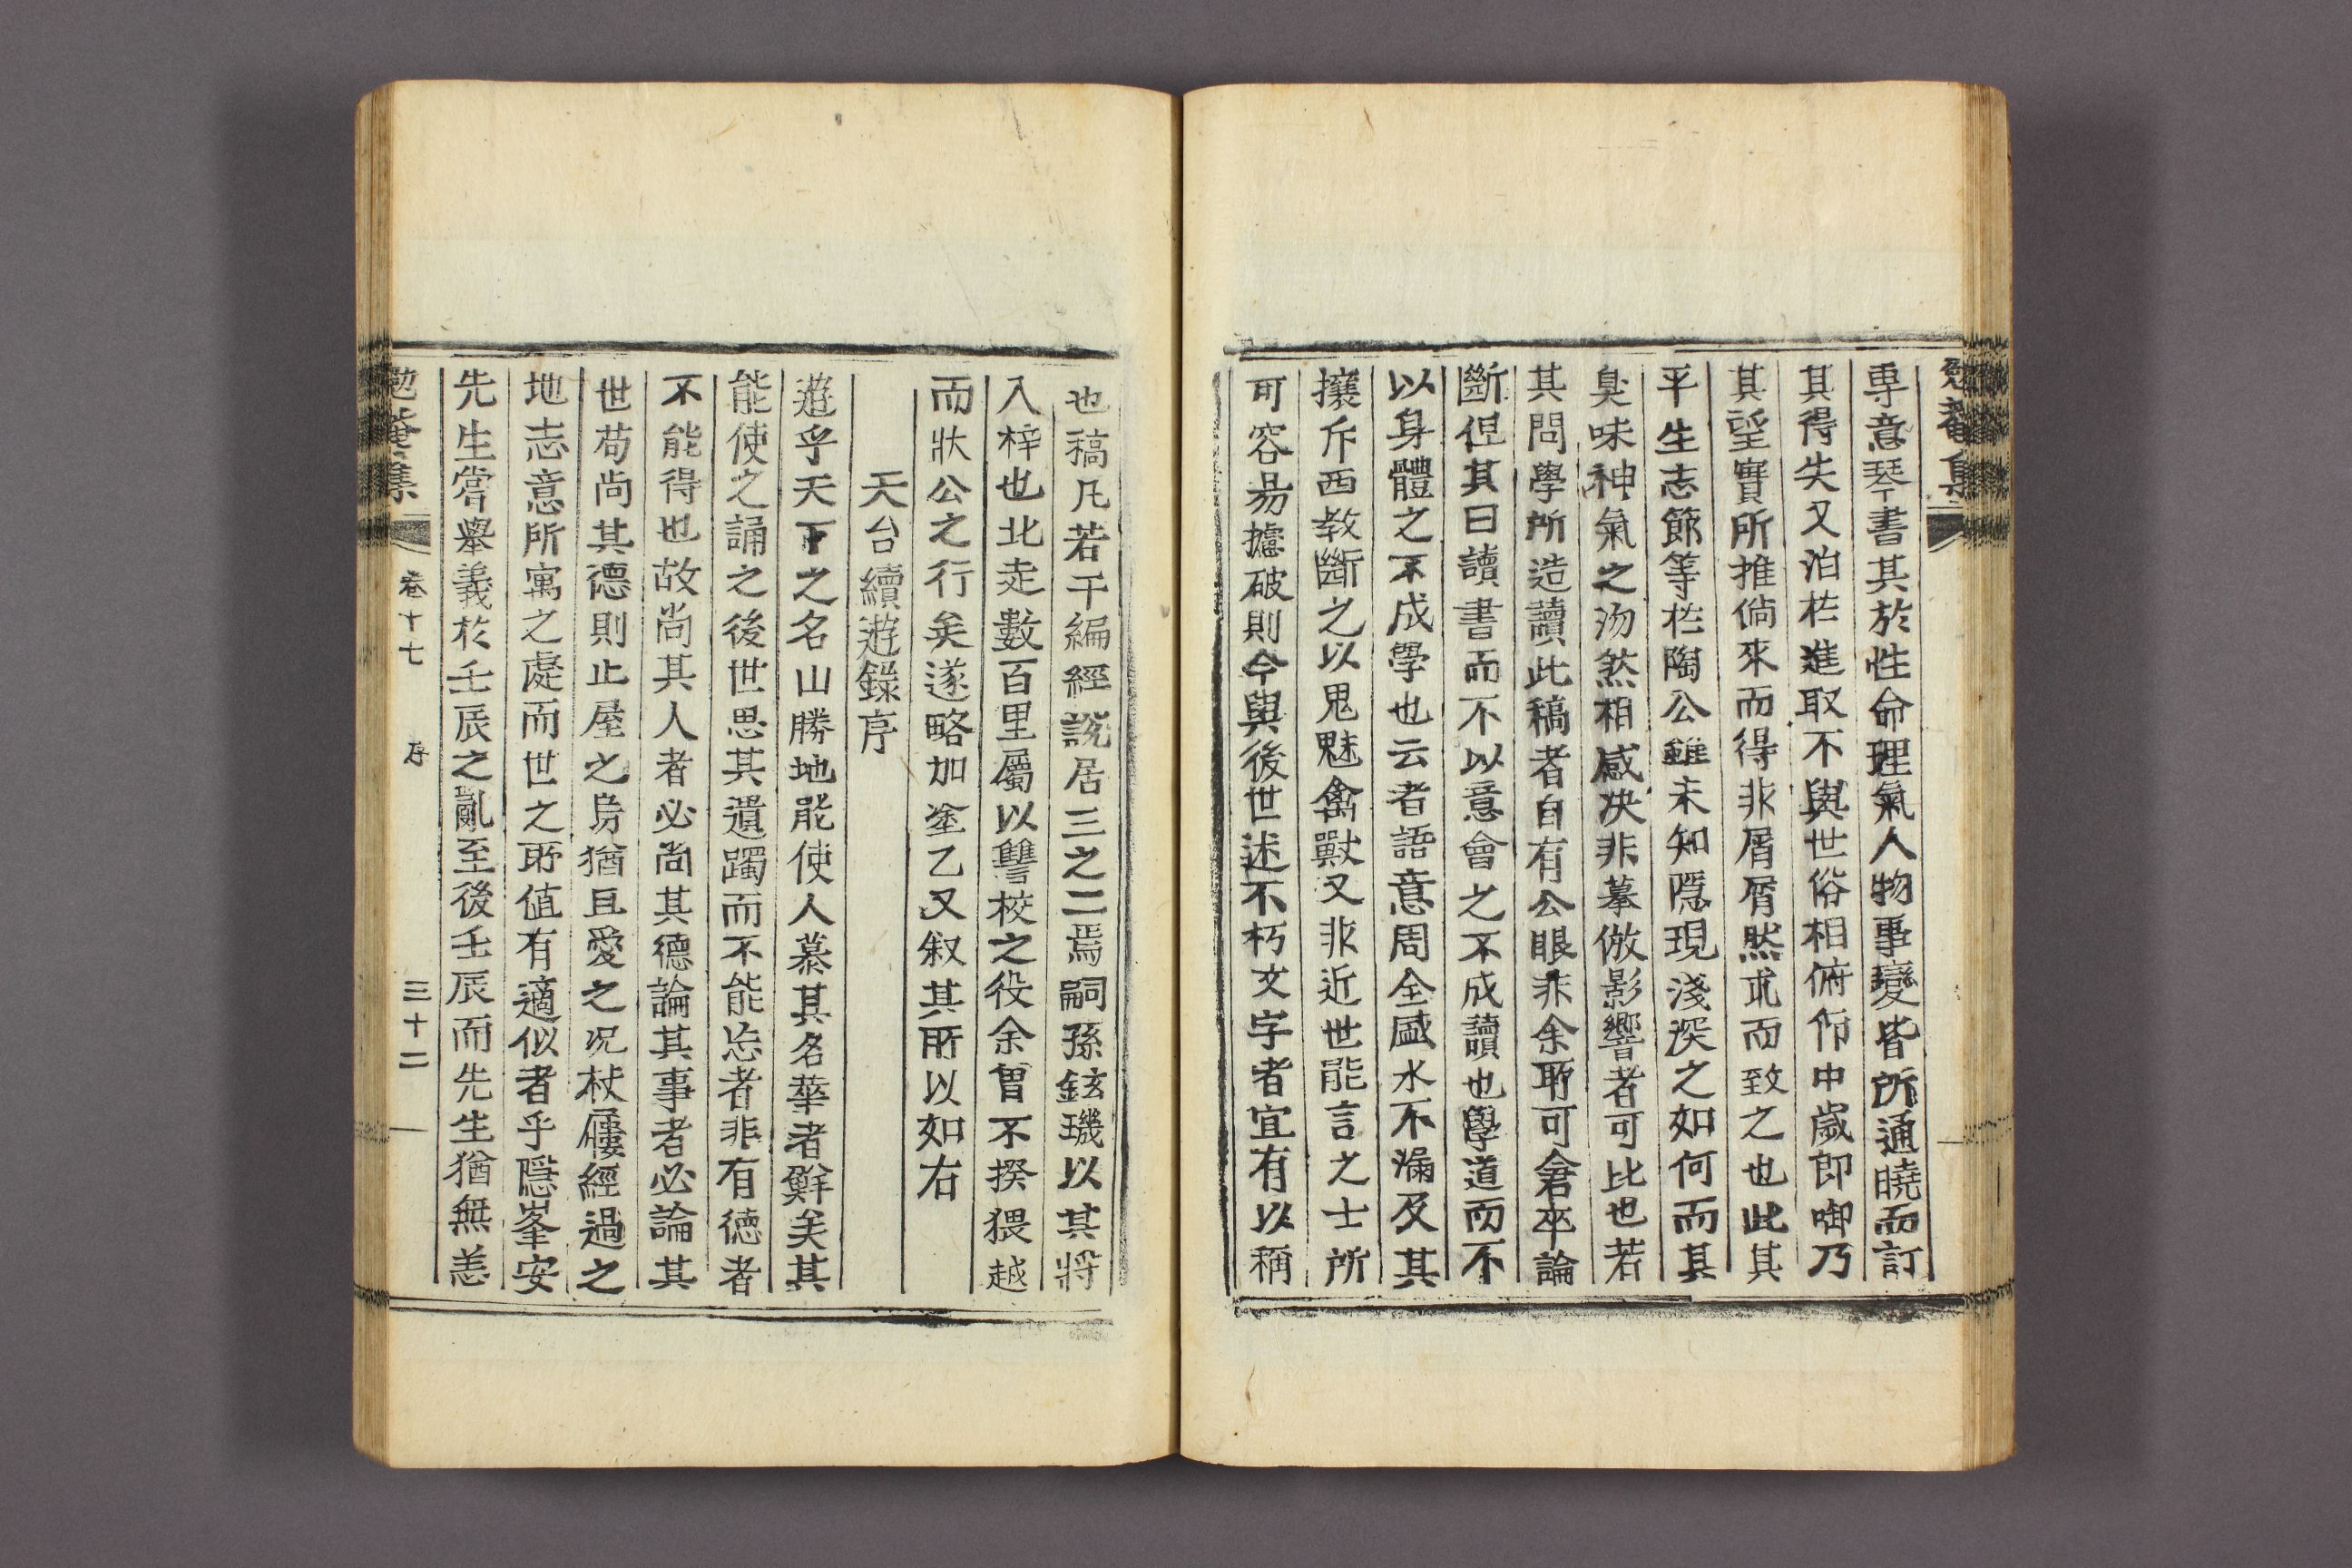 勉菴集
專意琴書其於性命理氣人物事變皆所通曉而訂
其得失又泊於進取不與世俗相俯仰中歲即啣乃
其望實所推倘來而得非屑屑然求而致之也此其
平生志節等於陶公雖未知隱現淺深之如何而其
臭味神氣之沕然相感决非摹倣影響者可比也若
其問學所造讀此稿者自有公眼非余所可倉卒論
斷但其曰讀書而不以意會之不成讀也學道而不
以身體之不成學也云者語意周全盛水不漏及其
攘斥西敎斷之以鬼魅禽獸又非近世能言之士所
可容易攄破則今與後世述不朽文字者宜有以稱
也稿凡若干編經說居三之二焉嗣孫鉉璣以其將
入梓也北走數百里屬以讐校之役余曾不揆猥越
而狀公之行矣遂略加塗乙又叙其所以如右
天台續遊錄序
遊乎天下之名山勝地能使人慕其名華者鮮矣其
能使之誦之後世思其遺躅而不能忘者非有德者
不能得也故尚其人者必尚其德論其事者必論其
世苟尚其德則止屋之烏猶且愛之况杖屨經過之
地志意所寓之處而世之所值有適似者乎隱峯安
先生嘗擧義於壬辰之亂至後壬辰而先生猶無恙
勉菴集 卷十七 序 三十二